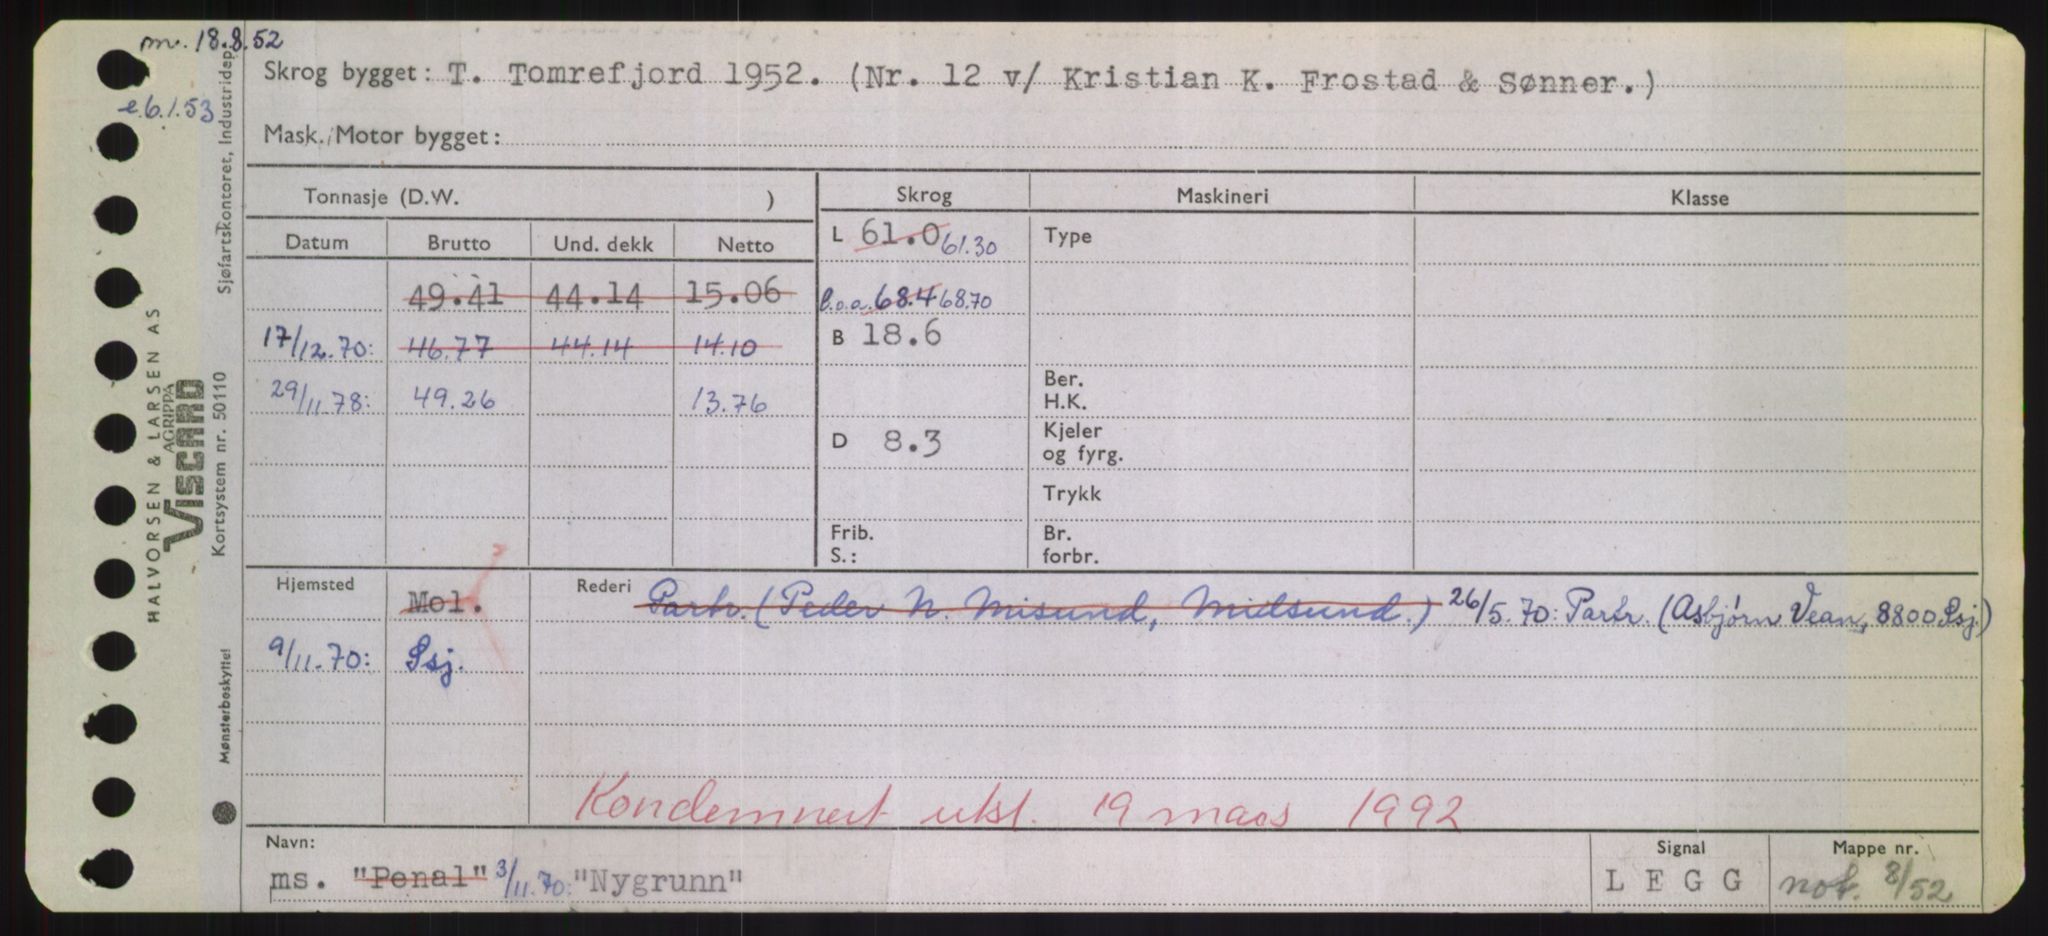 m. 18.8.52
e. 6.1.53
Skrog bygget: T. Tomrefjord 1952. (Nr. 12 v/ Kristian K. Frostad & Sønner.)
Mask./Motor bygget:
Tonnasje (D.W. )
Skrog Maskineri Klasse
Datum Brutto Und. dekk Netto
L 61.0 61.30 Type
49.41 44.14 15.06
l.o.a. 68.4 68.70
17/12.70: 46.77 44.14 14.10
B 18.6
29/11.78: 49.26 13.76
Ber.
H.K.
D 8.3
Kjeler
og fyrg.
Trykk
Frib.
S.:
Br.
forbr.
Hjemsted Mol. Rederi Partr. (Peder N. Misund, Midsund.) 26/5.70: Partr. (Asbjørn Vean, 8800 Ssj.)
9/11.70: Ssj.
Kondemnert utsl. 19 mars 1992
Navn: Signal Mappe nr.
ms. "Penal" 3/11.70: "Nygrunn" LEGG not. 8/52
HALVORSEN & LARSEN AS
VISCARD
AGRIPPA
Kortsystem nr. 50110
Sjøfartskontoret, Industridep.
Mønsterbeskyttet